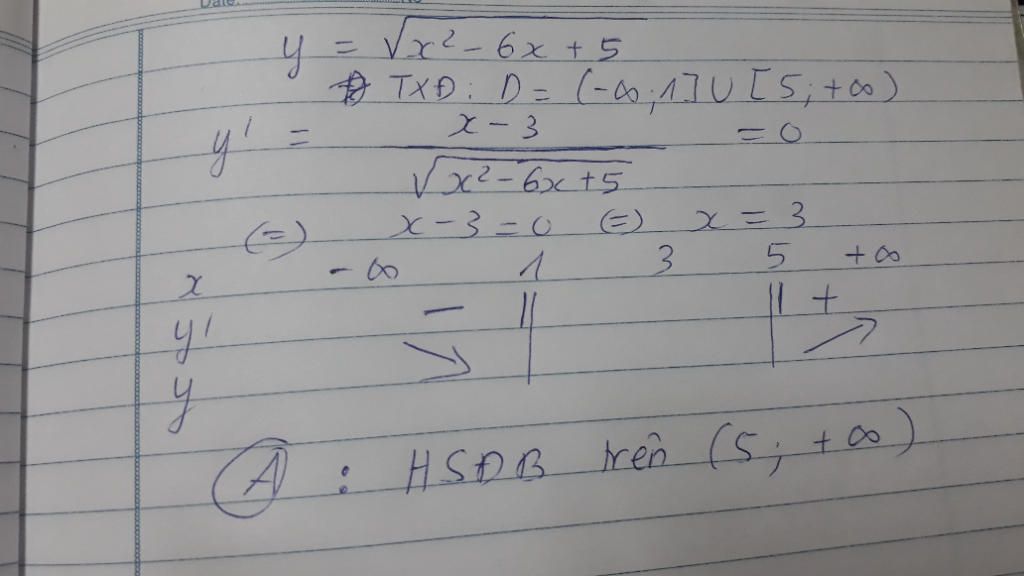 Date: No
y = √(x² - 6x + 5)
TXĐ: D = (-∞; 1] ∪ [5; +∞)
y' = (x - 3)/√(x² - 6x + 5) = 0
(=) x - 3 = 0 (=) x = 3
x -∞ 1 3 5 +∞
y' - || || +
y ↘ ↗
A : HSĐB trên (5; +∞)